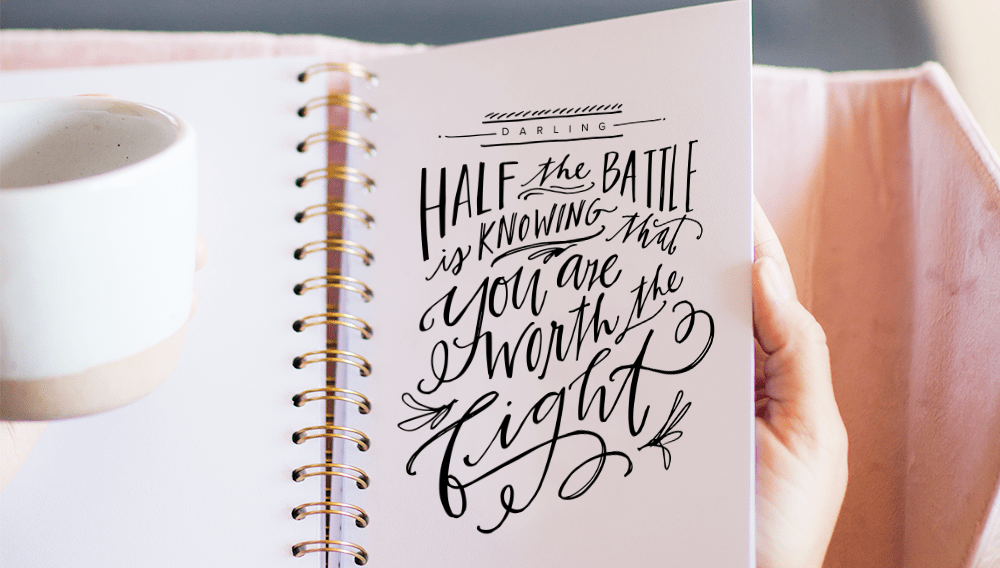 DARLING
HALF the BATTLE
is KNOWING that
you are
worth the
fight